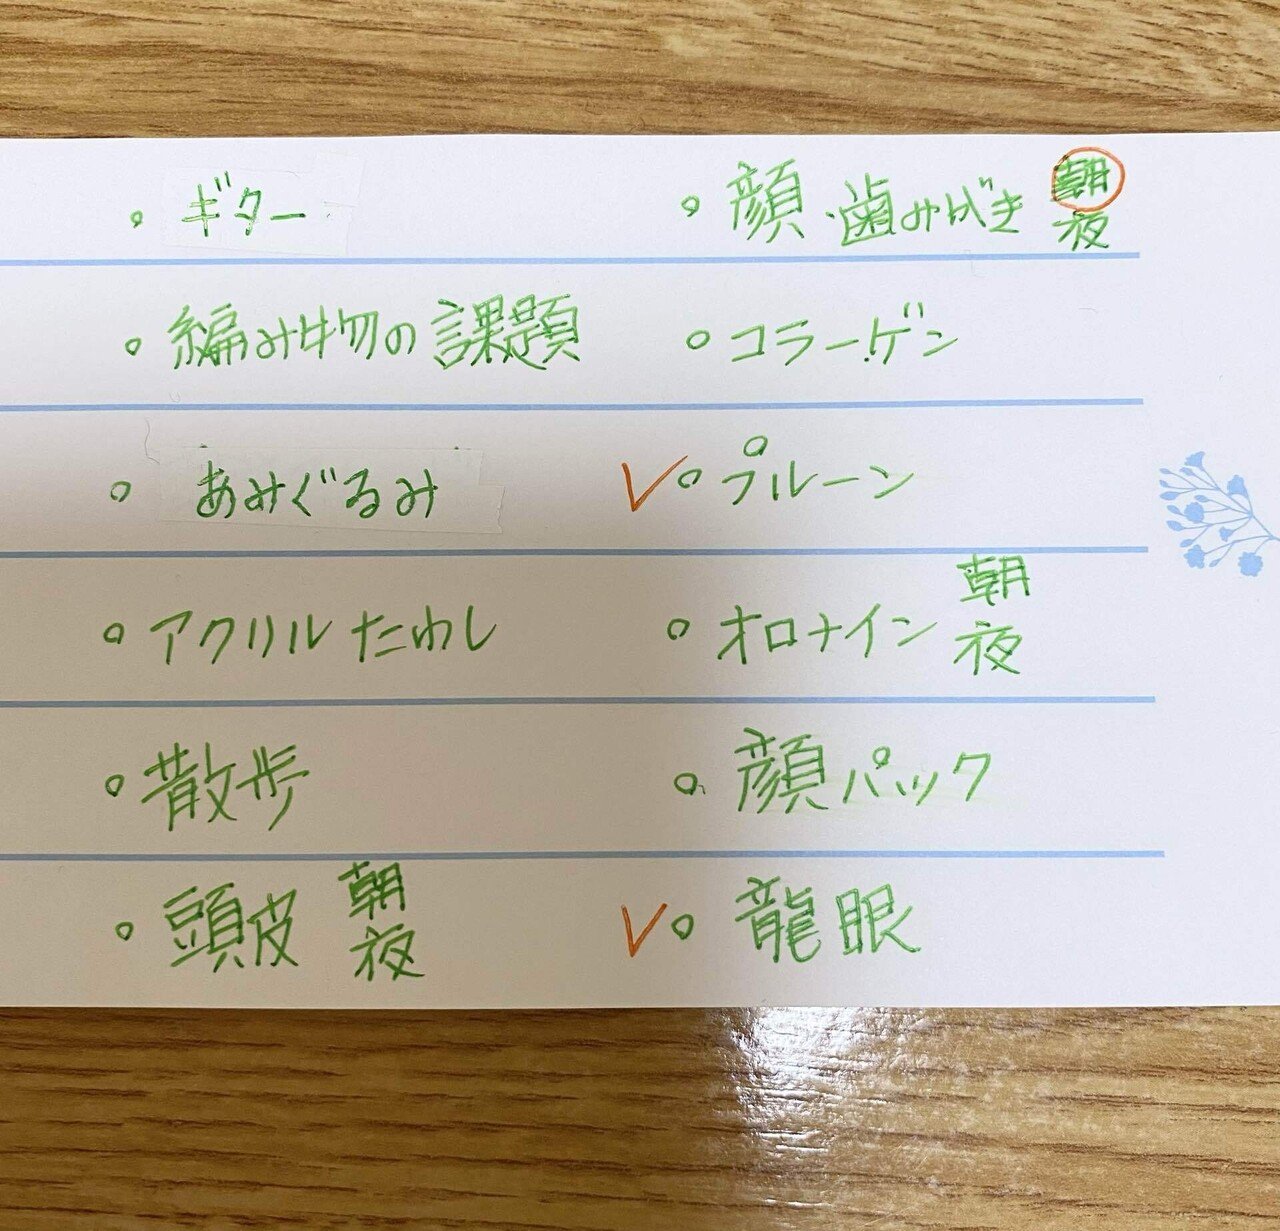 ギター
顔・歯みがき 朝
夜
編み物の課題
コラーゲン
あみぐるみ
プルーン
アクリルたわし
オロナイン 朝
夜
散歩
顔パック
頭皮 朝
夜
龍眼